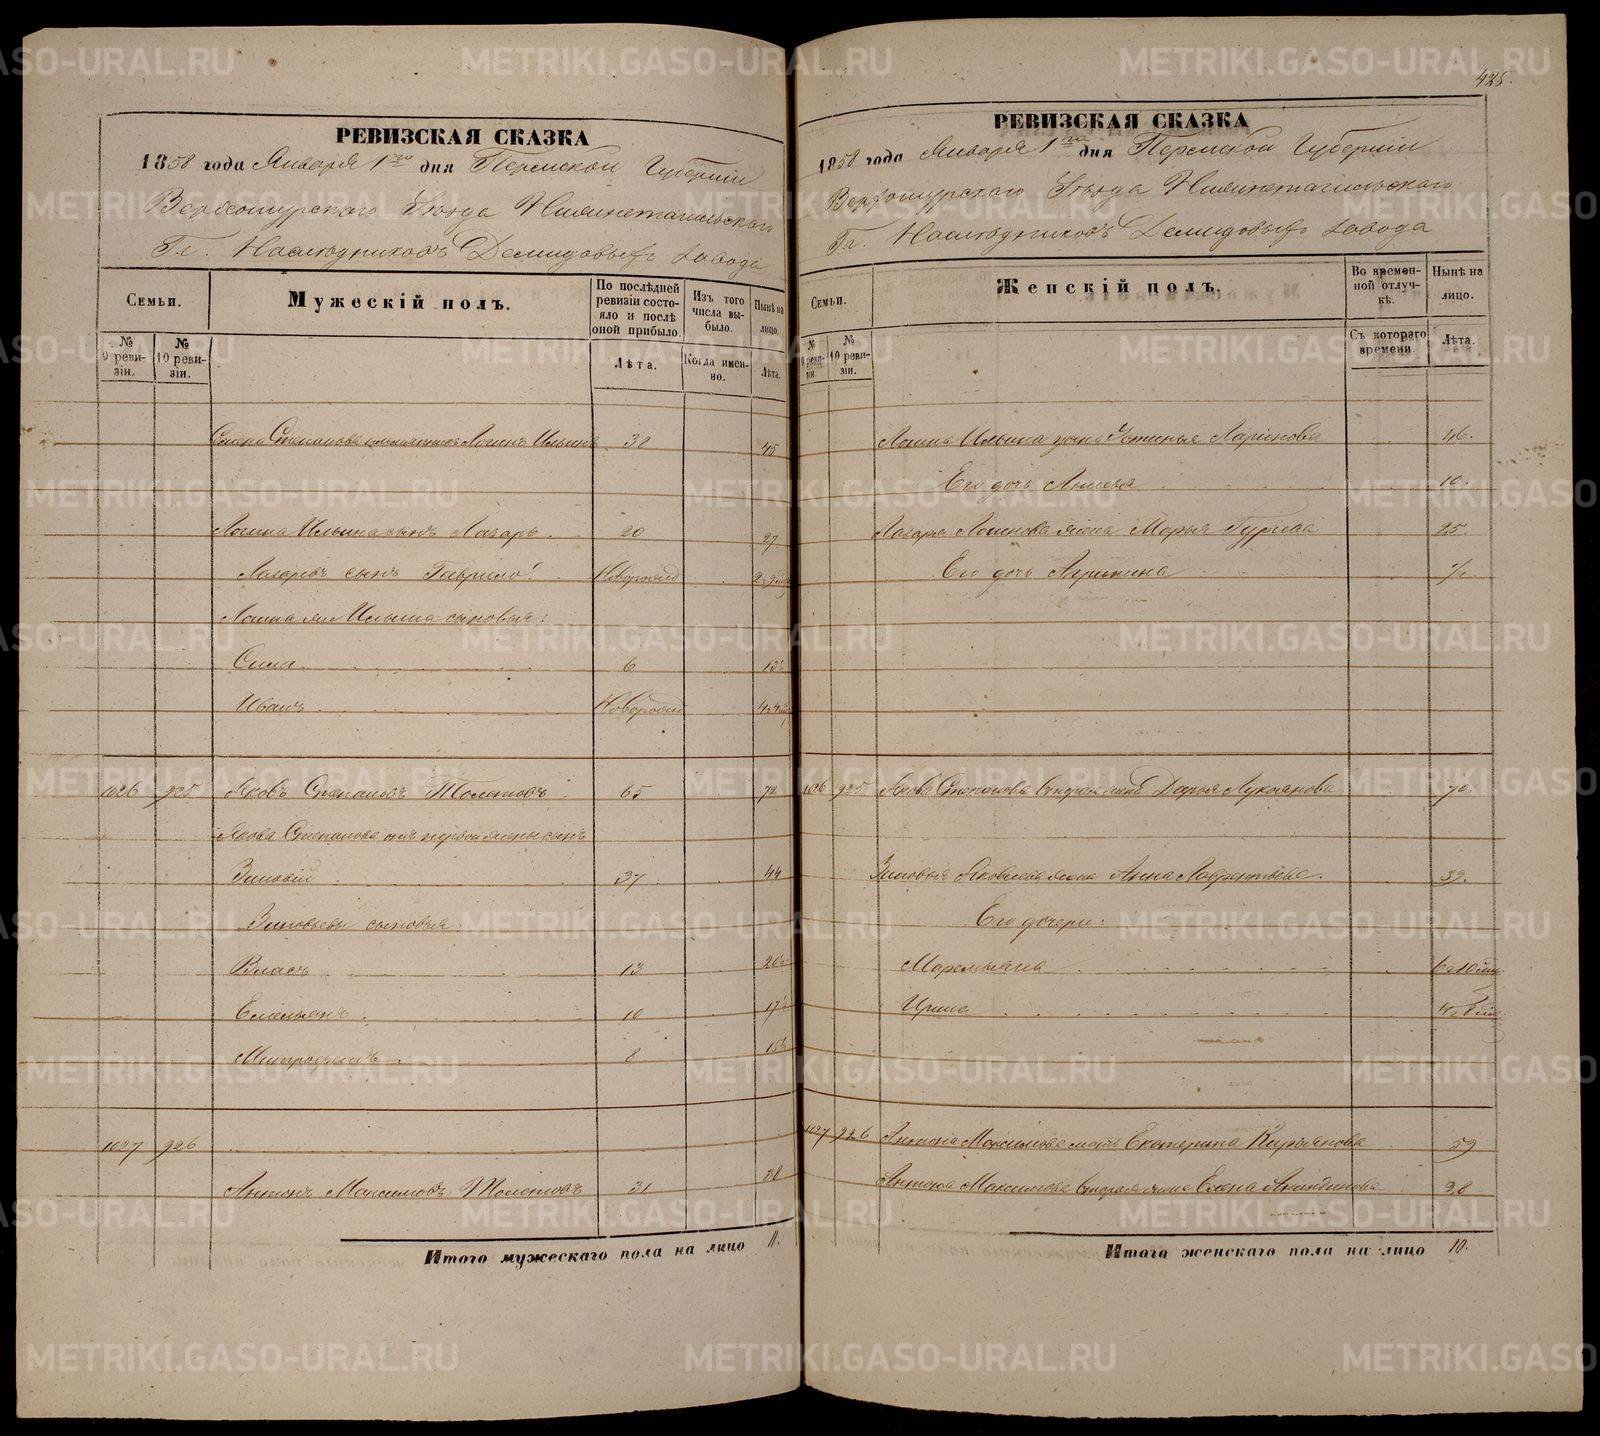 425.
РЕВИЗСКАЯ СКАЗКА
1858 года Января 1го дня Пермской Губернии
Верхотурского Уезда Нижнетагильского
Гг. Наследниковъ Демидовыхъ завода
Семьи.
Мужескій полъ.
По послѣдней ревизіи состояло и послѣ оной прибыло.
Изъ того числа выбыло.
Нынѣ на лицо.
№ 9 ревизіи.
№ 10 ревизіи.
Лѣта.
Когда именно.
Лѣта.
Степанова племянникъ Логинъ Ильинъ 38 45
Логина Ильина сынъ Лазарь 20 27
Лазаревъ сынъ Гаврило
Логина Ильина сыновья:
Сила 6 13½
Иванъ
1026 925 Яковъ Степановъ 65 72
Якова Степанова отъ первой жены сынъ
Зиновій 37 44
Зиновьевы сыновья:
Власъ 13 20½
Емельянъ 10 17½
Митрофанъ 8 15½
1027 926
Антонъ Максимовъ 31 38
Итого мужескаго пола на лицо 11.
РЕВИЗСКАЯ СКАЗКА
1858 года Января 1го дня Пермской Губернии
Верхотурского Уезда Нижнетагильского
Гг. Наследниковъ Демидовыхъ завода
Семьи.
Женскій полъ.
Во временной отлучкѣ.
Нынѣ на лицо.
№ 9 ревизіи.
№ 10 ревизіи.
Съ котораго времени.
Лѣта.
Логина Ильина жена Устинья Ларіонова 46.
Его дочь 10.
Лазаря Логинова жена Марья Гурьева 25.
Его дочь
1026 925 Якова Степанова вторая жена Дарья Лукоянова 70.
Зиновья Яковлева жена Анна Лаврентьева. 39.
Его дочери:
Маремьяна
Ирина
1027 926 Антона Максимова мать Екатерина Кирьянова 59
Антона Максимова вторая жена Елена 38
Итого женскаго пола на лицо 10.
METRIKI.GASO-URAL.RU